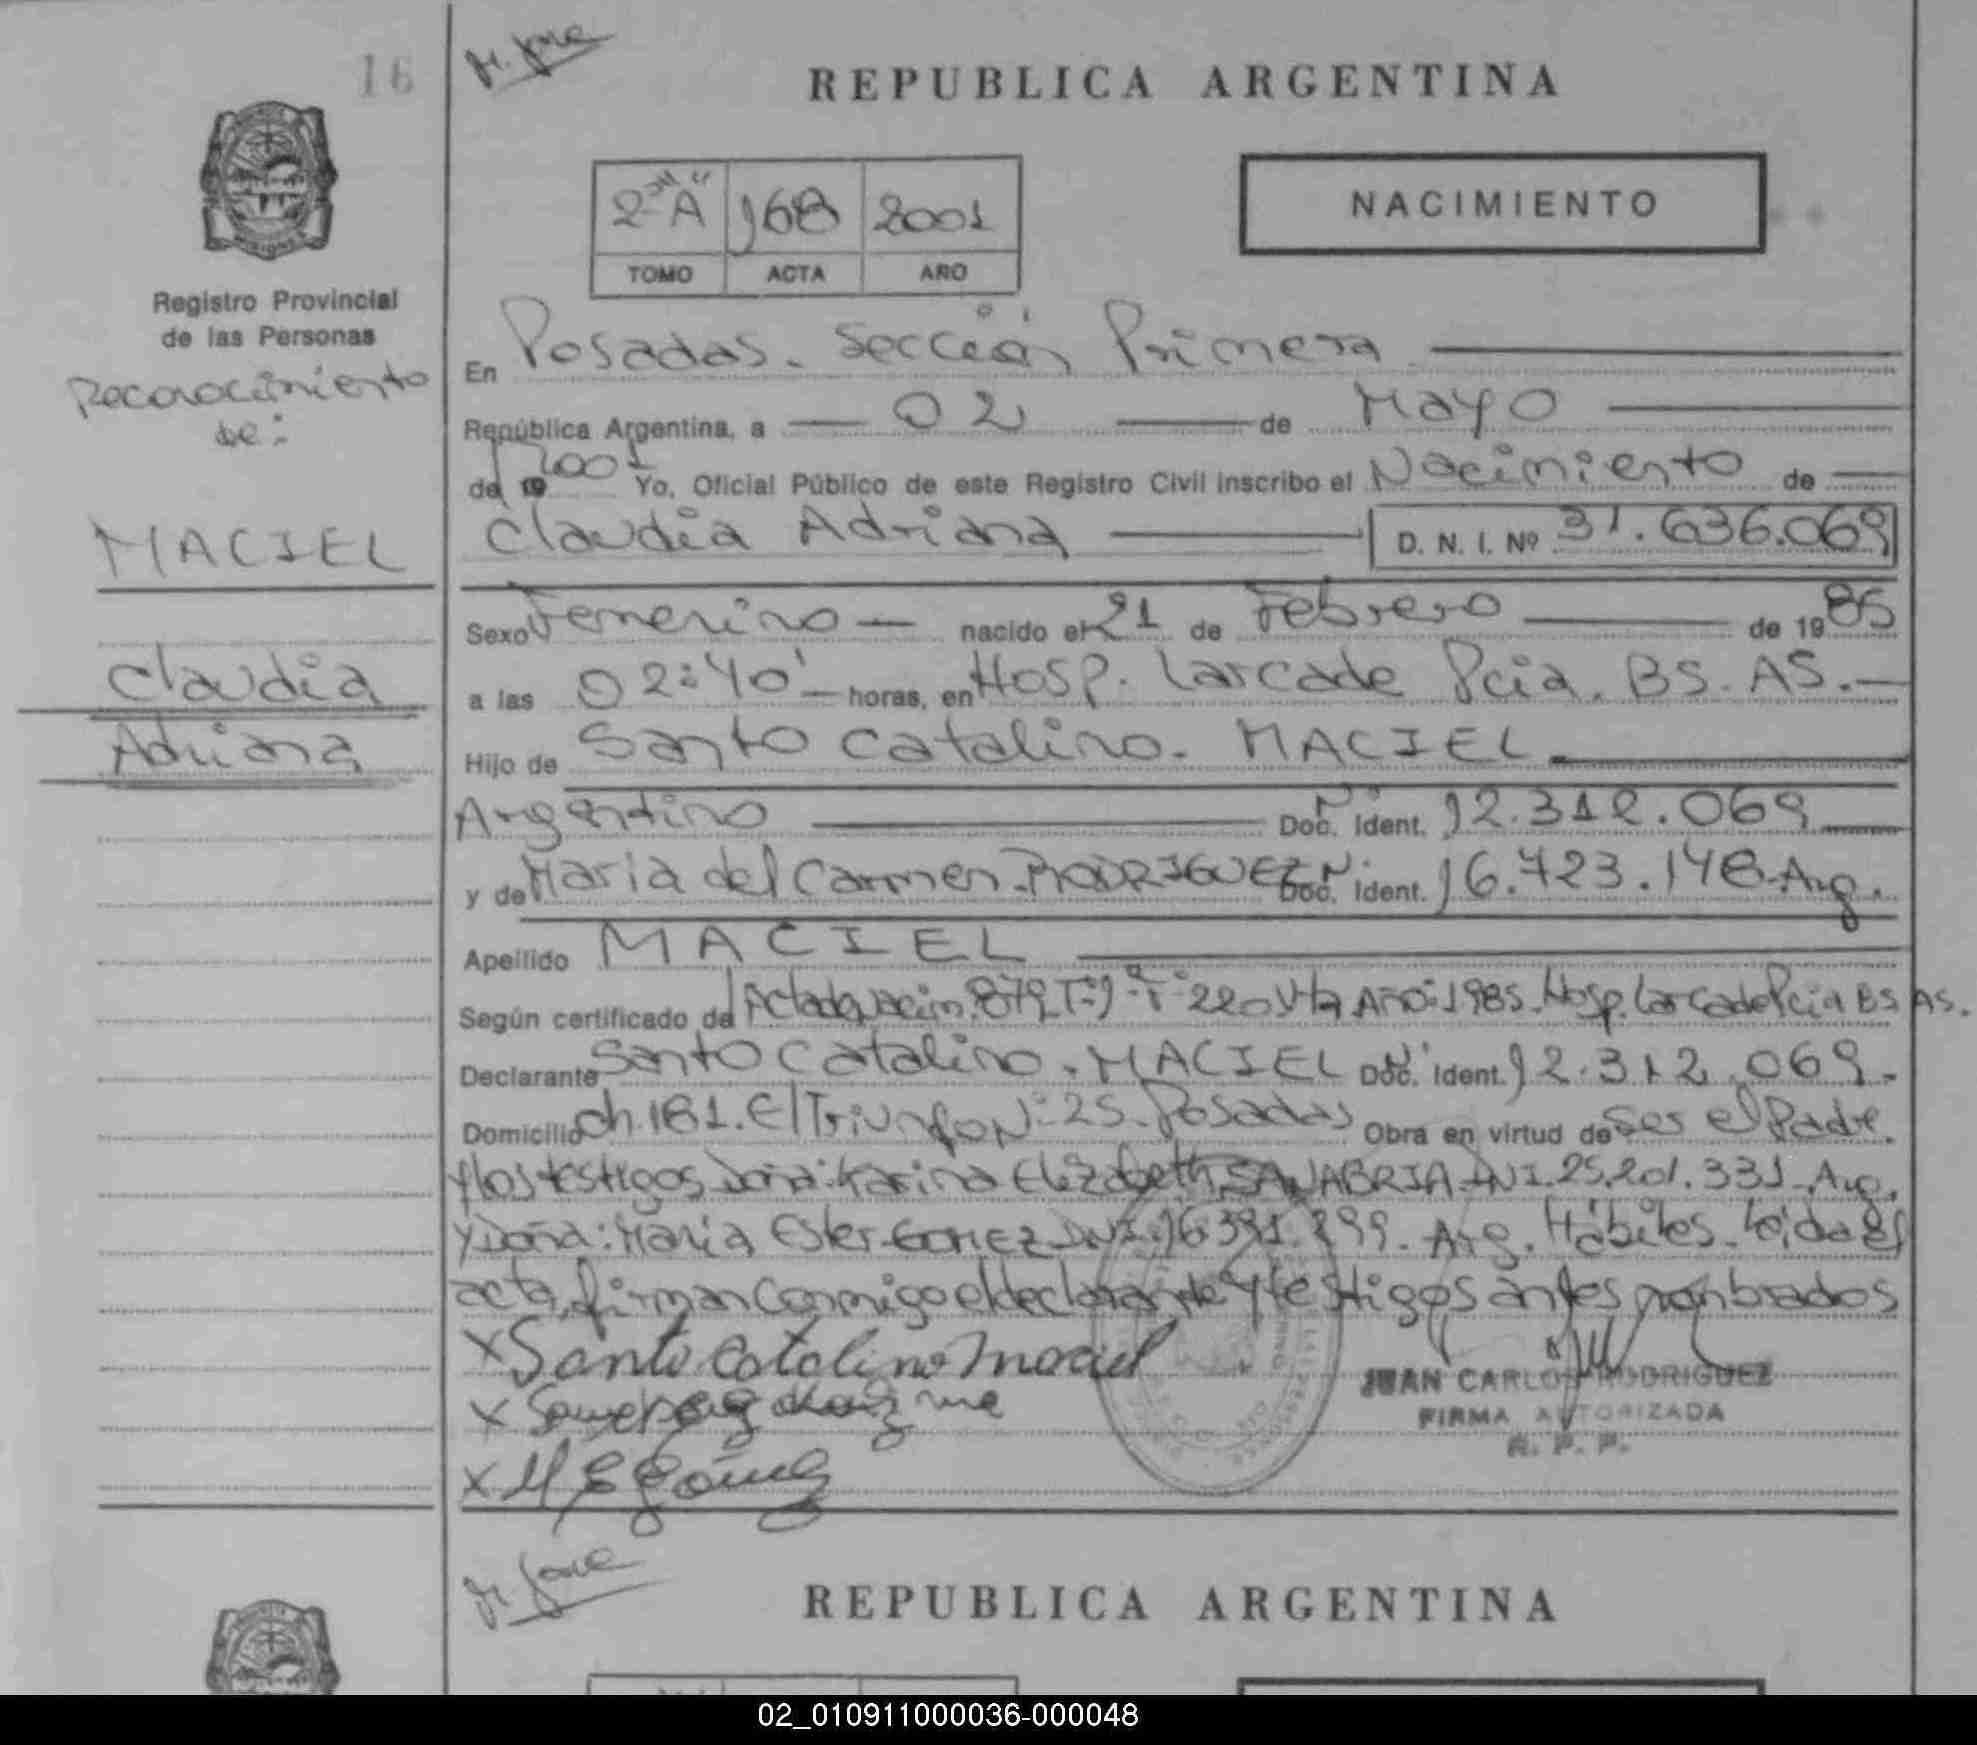 16
M. Jose
REPUBLICA ARGENTINA
NACIMIENTO
2º "A" 168 2001
TOMO ACTA AÑO
MISIONES
Registro Provincial
de las Personas
Reconocimiento
de:
MACIEL
Claudia
Adriana
En Posadas. Sección Primera
República Argentina, a 02 de Mayo
de 19 2001 Yo, Oficial Público de este Registro Civil inscribo el Nacimiento de
Claudia Adriana D. N. I. Nº 31.636.069
Sexo Femenino nacido el 21 de Febrero de 19 85
a las 02:40' horas, en Hosp. Larcade Pcia. BS. AS.
Hijo de Santo Catalino. MACIEL
Argentino Doc. Ident. Nº 12.312.069
y de Maria del Carmen RODRIGUEZ Doc. Ident. Nº 16.723.148 Arg.
Apellido MACIEL
Según certificado de Acta de Nacim. 879 Tº 9 Fº 220 Vta Año: 1985. Hosp. Larcade Pcia BS AS.
Declarante Santo Catalino. MACIEL Doc. Ident. Nº 12.312.069.
Domicilio Ch. 181. El Triunfo Nº 25. Posadas Obra en virtud de Ser el Padre.
y los testigos Doña: Karina Elizabeth SANABRIA DNI. 25.201.331. Arg.
y Doña: Maria Ester GOMEZ DNI. 16.391.899. Arg. Hábiles. Leida el
acta, firman conmigo el declarante y testigos antes nombrados
X Santo Catalino Maciel
X
X M E Gómez
JUAN CARLOS RODRIGUEZ
FIRMA AUTORIZADA
R. P. P.
M. Jose
REPUBLICA ARGENTINA
02_010911000036-000048